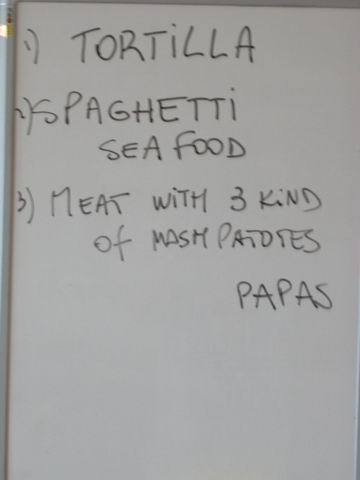 1) TORTiLLA
2) SPAGHETTi
SEA FOOD
3) MEAT WiTH 3 KiND
of MASH PATOTES
PAPAS